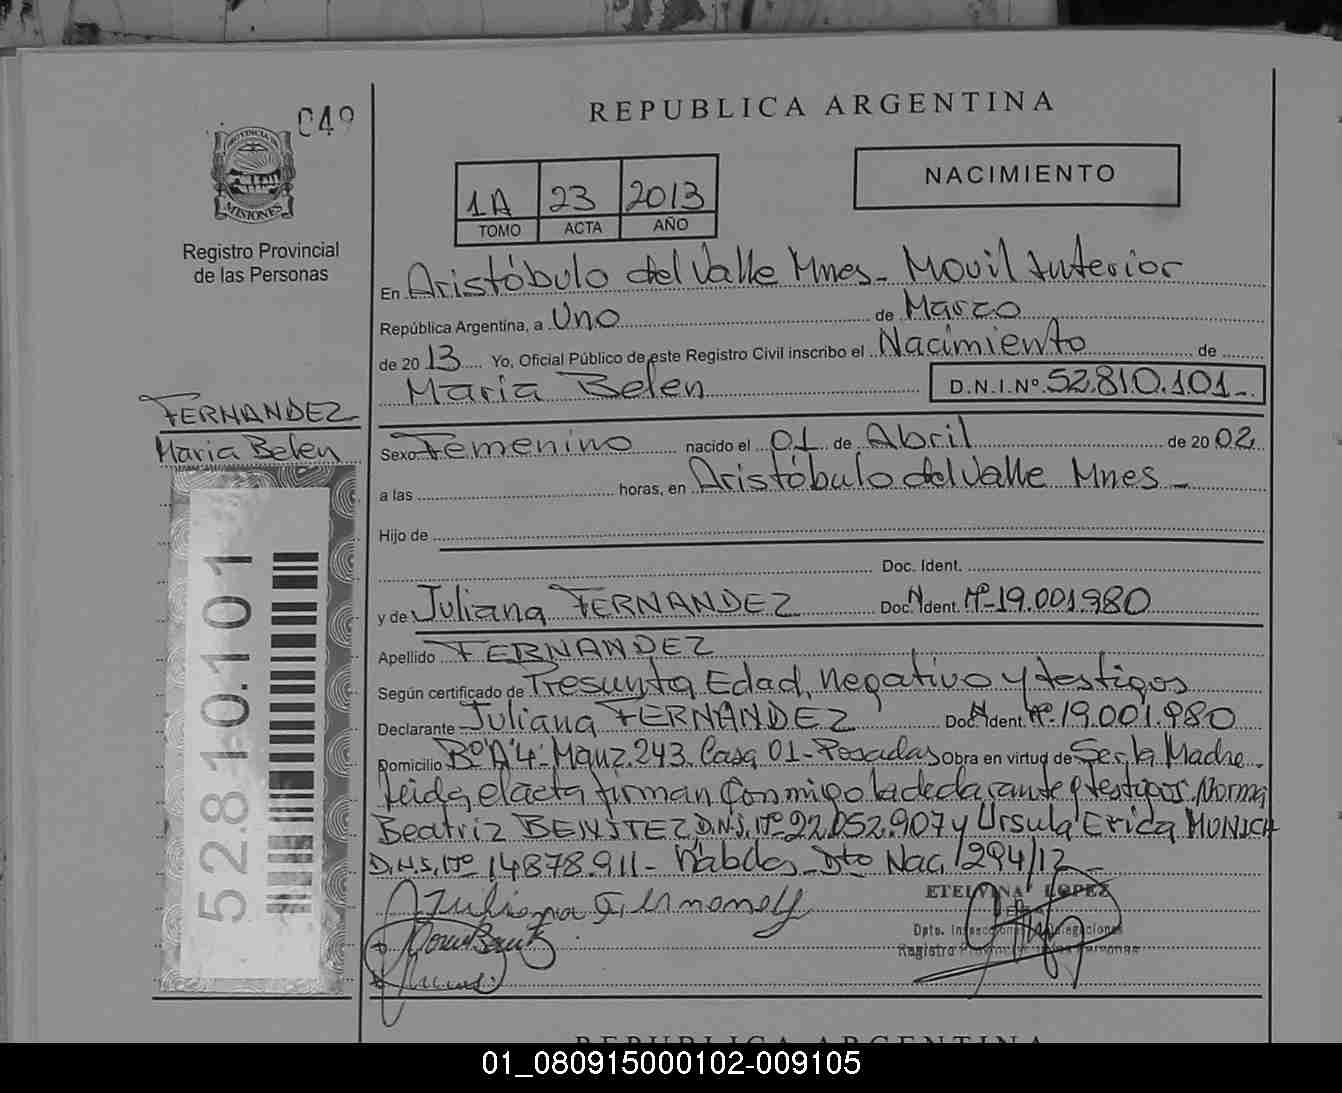 049
REPUBLICA ARGENTINA
PROVINCIA DE
MISIONES
NACIMIENTO
1A 23 2013
TOMO ACTA AÑO
Registro Provincial
de las Personas
En Aristóbulo del Valle Mnes - Movil Interior
República Argentina, a Uno de Marzo
de 2013 Yo, Oficial Público de este Registro Civil inscribo el Nacimiento de
Maria Belen D.N.I.Nº 52.810.101-
FERNANDEZ
Maria Belen
Sexo Femenino nacido el 01 de Abril de 2002
a las horas, en Aristóbulo del Valle Mnes -
Hijo de
Doc. Ident.
y de Juliana FERNANDEZ Doc. Ident. Nº 19.001.980
Apellido FERNANDEZ
Según certificado de Presunta Edad, negativo y testigos
Declarante Juliana FERNANDEZ Doc. Ident. Nº 19.001.980
Domicilio Bº A'4 - Manz. 243. Casa 01 - Posadas Obra en virtud de Ser la Madre.
Leida el acta firman conmigo la declarante y testigos. Norma
Beatriz BENITEZ D.N.I. Nº 22.052.907 y Ursula Erica MUNICH
D.N.I. Nº 14.878.911 - Dto Nac. 1294/12
52.810.101
ETELVINA LOPEZ
Dpto. Inspecciones Delegaciones
Registro Provincial Personas
REPUBLICA ARGENTINA
01_080915000102-009105